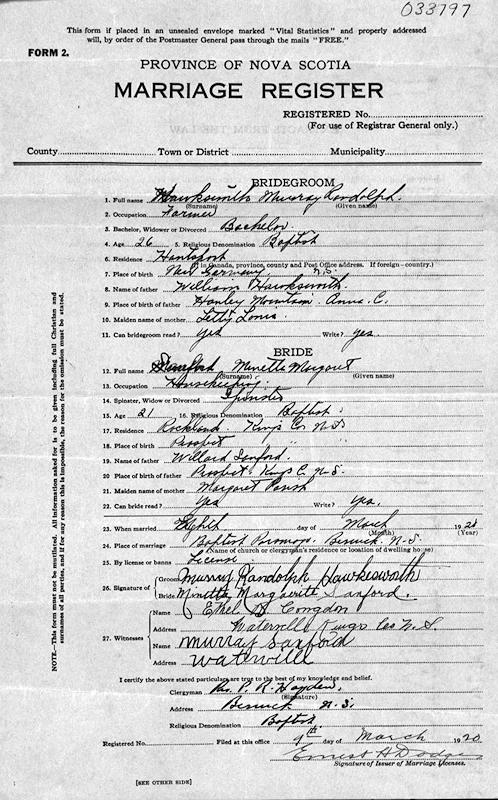 033797
This form if placed in an unsealed envelope marked "Vital Statistics" and properly addressed
will, by order of the Postmaster General pass through the mails "FREE."
FORM 2.
PROVINCE OF NOVA SCOTIA
MARRIAGE REGISTER
REGISTERED No.
(For use of Registrar General only.)
County Town or District Municipality
BRIDEGROOM
1. Full name Hawksworth Murray Randolph.
(Surname) (Given name)
2. Occupation Farmer
3. Bachelor, Widower or Divorced Bachelor
4. Age 26 5. Religious Denomination Baptist
6. Residence Hantsport
(If in Canada, province, county and Post Office address. If foreign—country.)
7. Place of birth New Germany N.S.
8. Name of father William Hawksworth.
9. Place of birth of father Hanley Mountain Anna. C.
10. Maiden name of mother Letty
11. Can bridegroom read? yes Write? yes
BRIDE
12. Full name Sanford Minetta Margaret
(Surname) (Given name)
13. Occupation Housekeeping
14. Spinster, Widow or Divorced Spinster
15. Age 21 16. Religious Denomination Baptist
17. Residence Rockland. Kings Co. N.S.
18. Place of birth Prospect " "
19. Name of father Willard Sanford.
20. Place of birth of father Prospect Kings C. N.S.
21. Maiden name of mother Margaret Parish
22. Can bride read? Yes Write? Yes.
23. When married Eighth day of March 1928
(Month) (Year)
24. Place of marriage Baptist Parsonage. Berwick, N.S.
(Name of church or clergyman's residence or location of dwelling house)
25. By license or banns License
26. Signature of Groom Murray Randolph Hawksworth
Bride Minetta Marguerite Sanford.
27. Witnesses Name Ethel B. Congdon
Address Waterville Kings Co N.S.
Name Murray Sanford
Address Waterville
I certify the above stated particulars are true to the best of my knowledge and belief.
Clergyman P. R. Hayden.
(Signature)
Address Berwick N.S.
Religious Denomination Baptist
Registered No. Filed at this office 9th day of March 1920
Ernest H Dodge
Signature of Issuer of Marriage Licenses.
[SEE OTHER SIDE]
NOTE.—This form must not be mutilated. All information asked for is to be given including full Christian and
surnames of all parties, and if for any reason this is impossible, the reason for the omission must be stated.